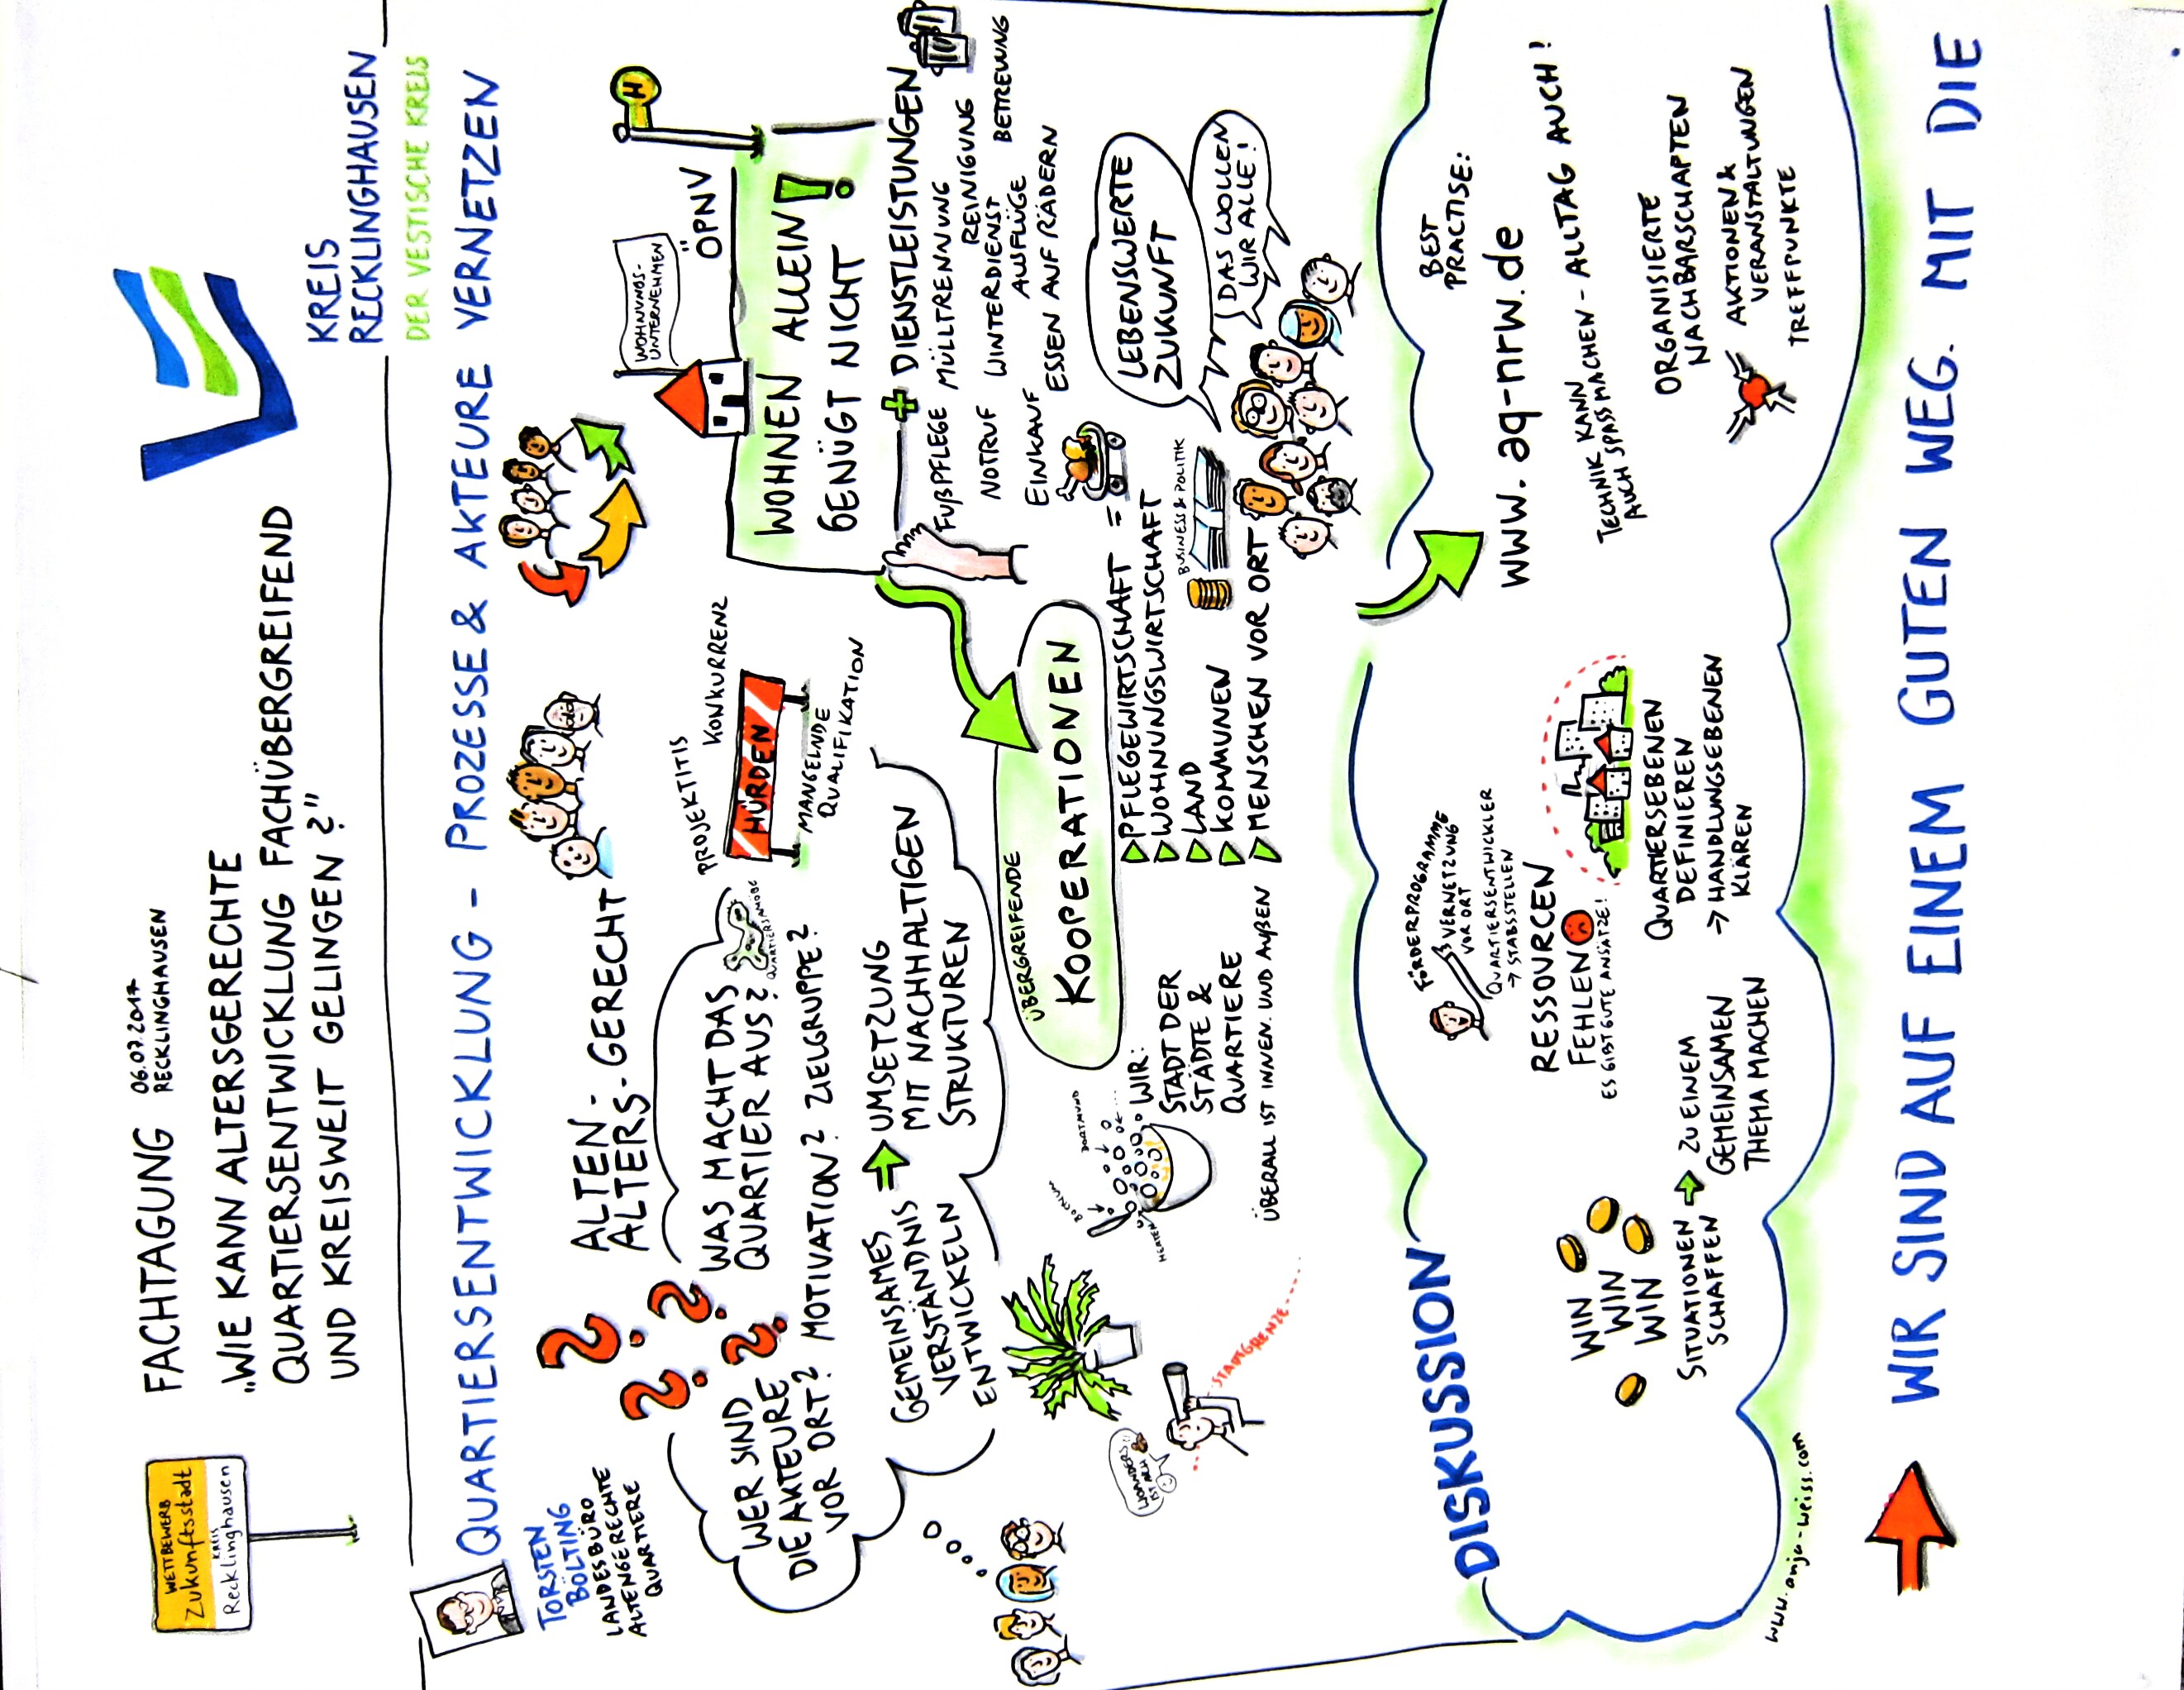 WETTBEWERB
Zukunftsstadt
KREIS
Recklinghausen
FACHTAGUNG
06.07.2017
RECKLINGHAUSEN
„WIE KANN ALTERSGERECHTE
QUARTIERSENTWICKLUNG FACHÜBERGREIFEND
UND KREISWEIT GELINGEN?"
KREIS
RECKLINGHAUSEN
DER VESTISCHE KREIS
QUARTIERSENTWICKLUNG - PROZESSE & AKTEURE VERNETZEN
TORSTEN
BÖLTING
LANDESBÜRO
ALTENGERECHTE
QUARTIERE
ALTEN-
ALTERS-GERECHT
WER SIND
DIE AKTEURE
VOR ORT?
WAS MACHT DAS
QUARTIER AUS?
QUARTIERSAMÖBE
MOTIVATION? ZIELGRUPPE?
GEMEINSAMES
VERSTÄNDNIS
ENTWICKELN
UMSETZUNG
MIT NACHHALTIGEN
STRUKTUREN
PROJEKTITIS
KONKURRENZ
HÜRDEN
MANGELNDE
QUALIFIKATION
WOHNUNGS-
UNTERNEHMEN
ÖPNV
H
WOHNEN ALLEIN
GENÜGT NICHT!
+ DIENSTLEISTUNGEN
FUßPFLEGE
MÜLLTRENNUNG
REINIGUNG
NOTRUF
WINTERDIENST
BETREUUNG
AUSFLÜGE
EINKAUF
ESSEN AUF RÄDERN
ÜBERGREIFENDE
KOOPERATIONEN
PFLEGEWIRTSCHAFT =
WOHNUNGSWIRTSCHAFT
LAND
KOMMUNEN
MENSCHEN VOR ORT
BUSINESS & POLITIK
LEBENSWERTE
ZUKUNFT
DAS WOLLEN
WIR ALLE!
WOANDERS
IST AUCH
STADTGRENZE....
BOCHUM
DORTMUND
HERTEN
WIR:
STADT DER
STÄDTE &
QUARTIERE
ÜBERALL IST INNEN. UND AUßEN
DISKUSSION
WIN
WIN
WIN
SITUATIONEN
SCHAFFEN
ZU EINEM
GEMEINSAMEN
THEMA MACHEN
FÖRDERPROGRAMME
VERNETZUNG
VOR ORT
QUARTIERSENTWICKLER
→ STABSSTELLEN
RESSOURCEN
FEHLEN
ES GIBT GUTE ANSÄTZE!
QUARTIERSEBENEN
DEFINIEREN
→ HANDLUNGSEBENEN
KLÄREN
BEST
PRACTISE:
www.aq-nrw.de
TECHNIK KANN
AUCH SPASS MACHEN - ALLTAG AUCH!
ORGANISIERTE
NACHBARSCHAFTEN
AKTIONEN &
VERANSTALTUNGEN
TREFFPUNKTE
www.anja-weiss.com
WIR SIND AUF EINEM GUTEN WEG. MIT DIE